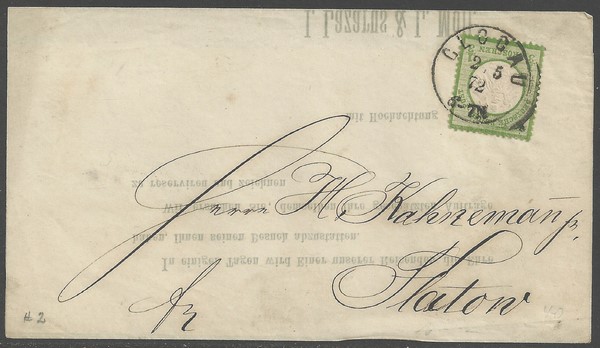 I. Lazarus & L. Mun
GLOGAU
2 5
72
6-7N
mit Hochachtung
zu reserviren und zeichnen
Wir ersuchen Sie, demselben Ihre geschätzten Aufträge
haben, Ihnen seinen Besuch abzustatten.
In einigen Tagen wird Einer unserer Reisenden die Ehre
Herrn H. Kahnemann jr.
Flatow
# 2